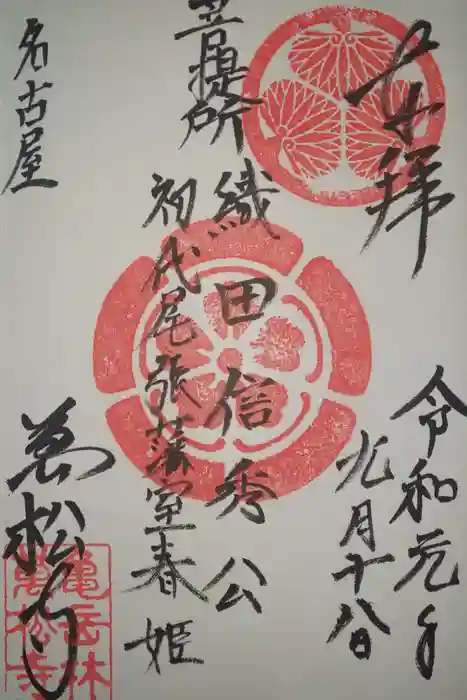 奉拝
令和元年
九月十八日
菩提所
織田信秀公
初代尾張藩室春姫
名古屋
萬松寺
亀岳林
萬松寺